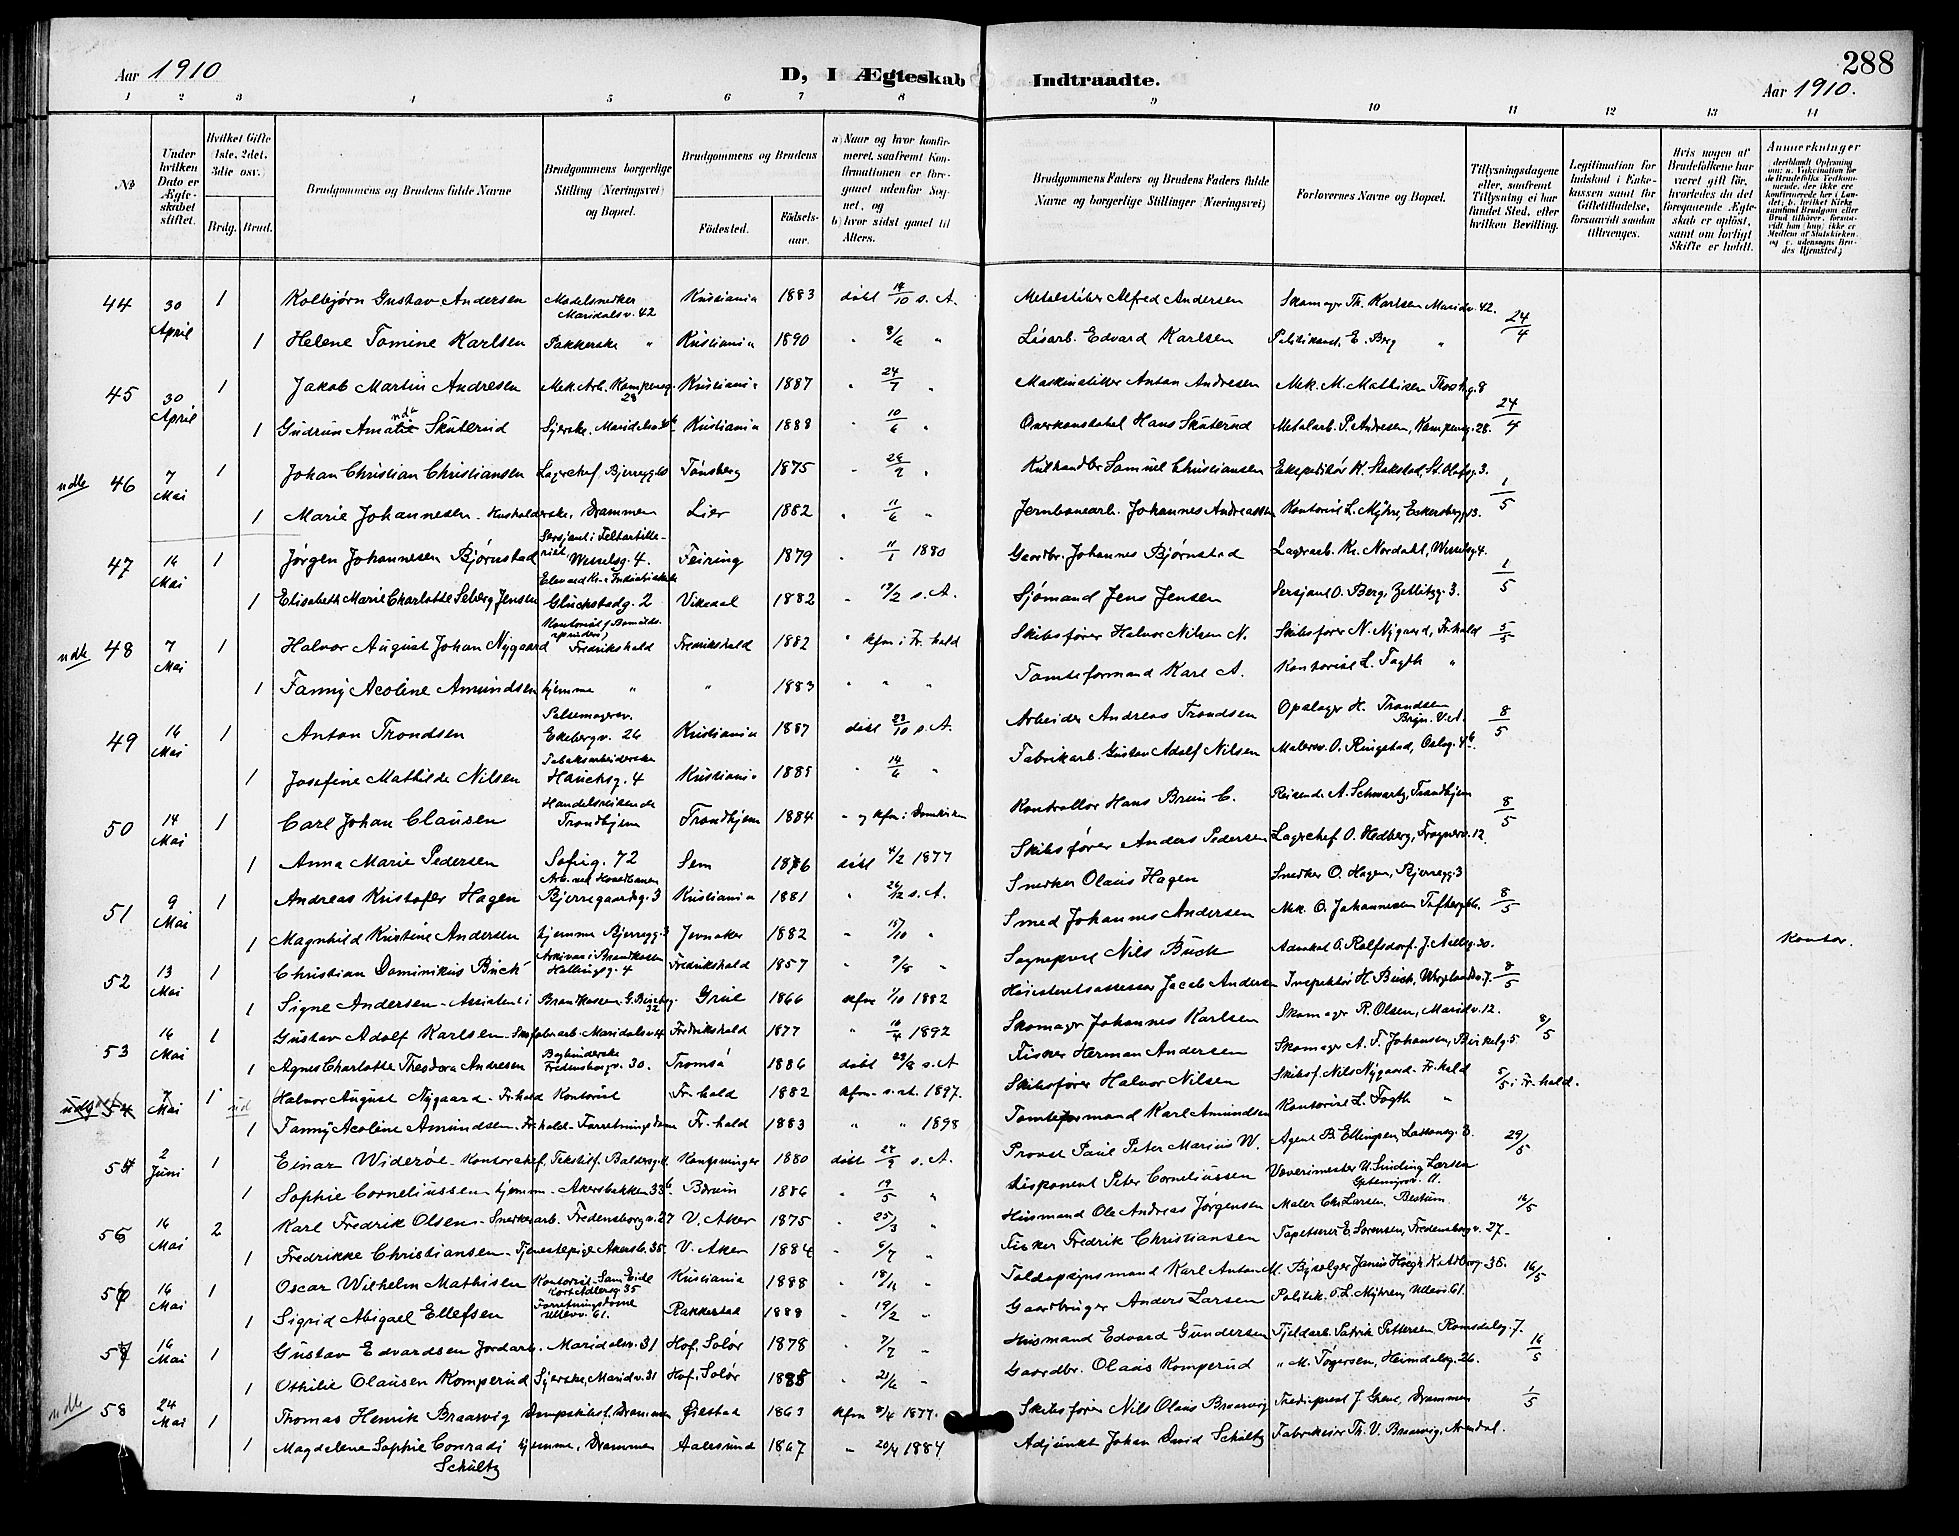 288
Aar 1910
D, I Ægteskab Indtraadte.
Aar 1910.
1 2 3 4 5 6 7 8 9 10 11 12 13 14
No
Under hvilken Dato er Ægteskabet stiftet.
Hvilket Gifte (1ste, 2det, 3die osv.)
Brdg. Brud.
Brudgommens og Brudens fulde Navne
Brudgommens borgerlige Stilling (Næringsvei) og Bopæl.
Brudgommens og Brudens
Födested.
Födselsaar.
a) Naar og hvor konfirmeret, saafremt Konfirmationen er foregaaet udenfor Sognet, og
b) hvor sidst gaaet til Alters.
Brudgommens Faders og Brudens Faders fulde Navne og borgerlige Stillinger (Næringsvei)
Forlovernes Navne og Bopæl.
Tillysningsdagene eller, saafremt Tillysning ei har fundet Sted, efter hvilken Bevilling.
Legitimation for Indskud i Enkekassen samt for Giftetilladelse, forsaavidt saadan tiltrænges.
Hvis nogen af Brudefolkene har været gift för, hvorledes da det foregaaende Ægteskab er oplöst, samt om lovligt Skifte er holdt.
Anmerkninger
44 30 April 1 Kolbjørn Gustav Andersen Modelsnedker Maridalsv. 42 Kristiania 1883 døbt 14/10 s. A. Metalstøber Alfred Andersen Skomagr Th. Karlsen Maridv. 42. 24/4
1 Helene Tomine Karlsen Pakkerske " Kristiania 1890 " 8/6 " Løsarb. Edvard Karlsen Politikonst. E. Berg "
45 30 April 1 Jakob Martin Andresen Mek. Arb. Kampeng. 28 Kristiania 1887 " 24/7 " Maskinstiller Anton Andresen Mek. M. Mathisen 24/4
1 Gudrun Amanda Skuterud Syerske. Kristiania 1888 " 10/6 " Overkonstabel Hans Skuterud Metalarb. P. Andresen, Kampeng. 28.
udb 46 7 Mai 1 Johan Christian Christiansen Lagerchef. Tønsberg 1875 " " Kulhandler Samuel Christiansen 1/5
1 Marie Johannesen - Husholderske, Drammen Lier 1882 " 11/6 " Jernbanearb. Johannes Andreassen Kontorist L. Myhre, Eckersbg. 13.
47 16 Mai 1 Jørgen Johannesen Bjørnstad Sersjant i Feltartilleriet Wesselsg. 4. Feiring 1879 " 11/1 1880 Gaardbr. Johannes Bjørnstad Lagerarb. Kr. Nordahl, Wesselsg. 4. 1/5
1 Elisabeth Marie Charlotte Seberg Jensen Glückstadg. 2 Vikedal 1882 " 19/2 s. A. Sjømand Jens Jensen Sersjant O. Berg, Zetlitzg. 3.
udb 48 7 Mai 1 Halvor August Johan Nygaard Fredrikshald Fredrikshald 1882 " kfm i Fr. hald Skibsfører Halvor Nilsen N. Skibsfører N. Nygaard, Fr. hald 5/5
1 Fanny Acoline Amundsen hjemme " " 1883 " " " Tomteformand Karl A. Kontorist L. Fogth "
49 16 Mai 1 Anton Trondsen Pølsemagersv. Ekebergv. 26 Kristiania 1887 døbt 23/10 s. A. Arbeider Andreas Trondsen Opslager H. Trondsen Bryn. V. A. 8/5
1 Josefine Mathilde Nilsen Tobaksarbeiderske Hauchsg. 4 Kristiania 1889 " 14/6 " Fabrikarb. Gustav Adolf Nilsen Malersv. O. Ringstad, Oslog. 4b.
50 14 Mai 1 Carl Johan Clausen Handelsreisende Trondhjem Trondhjem 1884 " og kfm i Domkirken Kontrollør Hans Bruun C. Reisende A. Schwartz, Trondhjem 8/5
1 Anna Marie Pedersen Sofieg. 72 Sem 1876 døbt 4/2 1877 Skibsfører Anders Pedersen Lagerchef O. Hedberg, Frognerv. 12.
51 9 Mai 1 Andreas Kristofer Hagen Bjerregaardsg. 3 Kristiania 1881 " 26/12 s. A. Snedker Olaus Hagen Snedker O. Hagen, Bjerregg. 3 8/5
1 Magnhild Kristine Andersen hjemme Bjerregg. 3 Jevnaker 1882 " 15/10 " Smed Johannes Andersen Mek. O. Johannesen
52 13 Mai 1 Christian Dominikus Buch Arkivar i Brandkassen Hallingsg. 4 Fredrikshald 1857 " 9/8 " Sogneprest Nils Buch Advokat O. Rolfsdorf. 30. 8/5 Kontor.
1 Signe Andersen - Assistent i Brandkassen. 32 Grue 1866 kfm 1/10 1882 Høiesteretsassessor Jacob Andersen Inspektør H. Buch, 7.
53 16 Mai 1 Gustav Adolf Karlsen - Maridalsv. 4 Fredrikshald 1877 " 10/4 1892 Skomagr Johannes Karlsen Skomagr R. Olsen, Maridv. 12. 8/5
1 Agnes Charlotte Theodora Andresen Fredensborgv. 30. Tromsø 1886 døbt 28/8 s. A Fisker Herman Andersen Skomagr A. F. Johansen, Birkelg. 5
udg 54 7 Mai 1 Halvor August Nygaard. Fr. hald Kontorist Fr. hald 1882 kfm. s. st. 1897. Skibsfører Halvor Nilsen Skibsf. Nils Nygaard. Fr. hald 5/5 i Fr. hald.
ud 1 Fanny Acoline Amundsen. Fr. hald. Forretningsdame Fr. hald 1883 " " 1898 Tomteformand Karl Amundsen Kontorist L. Fogth "
54 2 Juni 1 Einar Widerøe - Kontorchef, Kongsvinger 1880 døbt 27/9 s. A. Provst Paul Peter Marius W. Agent B. Ellingsen, 29/5
1 Sophie Corneliussen - hjemme - Akersbakken 33b Bærum 1886 " 19/5 " Disponent Peter Corneliussen Væverimester U. Sinding Larsen
55 16 Mai 2 Karl Fredrik Olsen - Snedkerarb. Fredensborgv. 27 V. Aker 1875 " 25/3 " Husmand Ole Andreas Jørgensen Maler Chr. Larsen, Bestum 16/5
1 Fredrikke Christiansen - Tjenestepige V. Aker 1884 " 6/7 " Fisker Fredrik Christiansen Tapetserer E. Sørensen, Fredensborgv. 27.
56 16 Mai 1 Oscar Wilhelm Mathisen Kontorist - Sam Eide Kort Adlersg. 35 Kristiania 1888 " 18/11 " Toldopsynsmand Karl Anton M. 16/5
1 Sigrid Abigael Ellefsen Forretningsdame Ullevv. 61. Rakkestad 1888 " 19/2 " Gaardbruger Anders Larsen Politik. O. L. Myhren, Ullevv. 61.
57 16 Mai 1 Gustav Edvardsen Jordarb. Maridalsv. 31 Hof, Solør 1878 " 7/7 " Husmand Edvard Gundersen Fjeldarb. Patrik Pettersen, Romsdalsg. 7. 16/5
1 Othilie Olausen Komperud Syerske, Maridv. 31 Hof, Solør 1885 " 21/6 " Gaardbr. Olaus Komperud " M. Tøgersen, Heimdalsg. 26.
udb 58 24 Mai 1 Thomas Henrik Braarvig Dampskibsf. Drammen Øiestad 1863 kfm 8/4 1877. Skibsfører Nils Olaus Braarvig Trediepræst J. Greve, Drammen 1/5
1 Magdelene Sophie Conradi Schultz hjemme, Drammen Aalesund 1867 " 20/4 1884 Adjunkt Johan David Schultz Fabrikeier Th. V. Braarvig, Arendal.